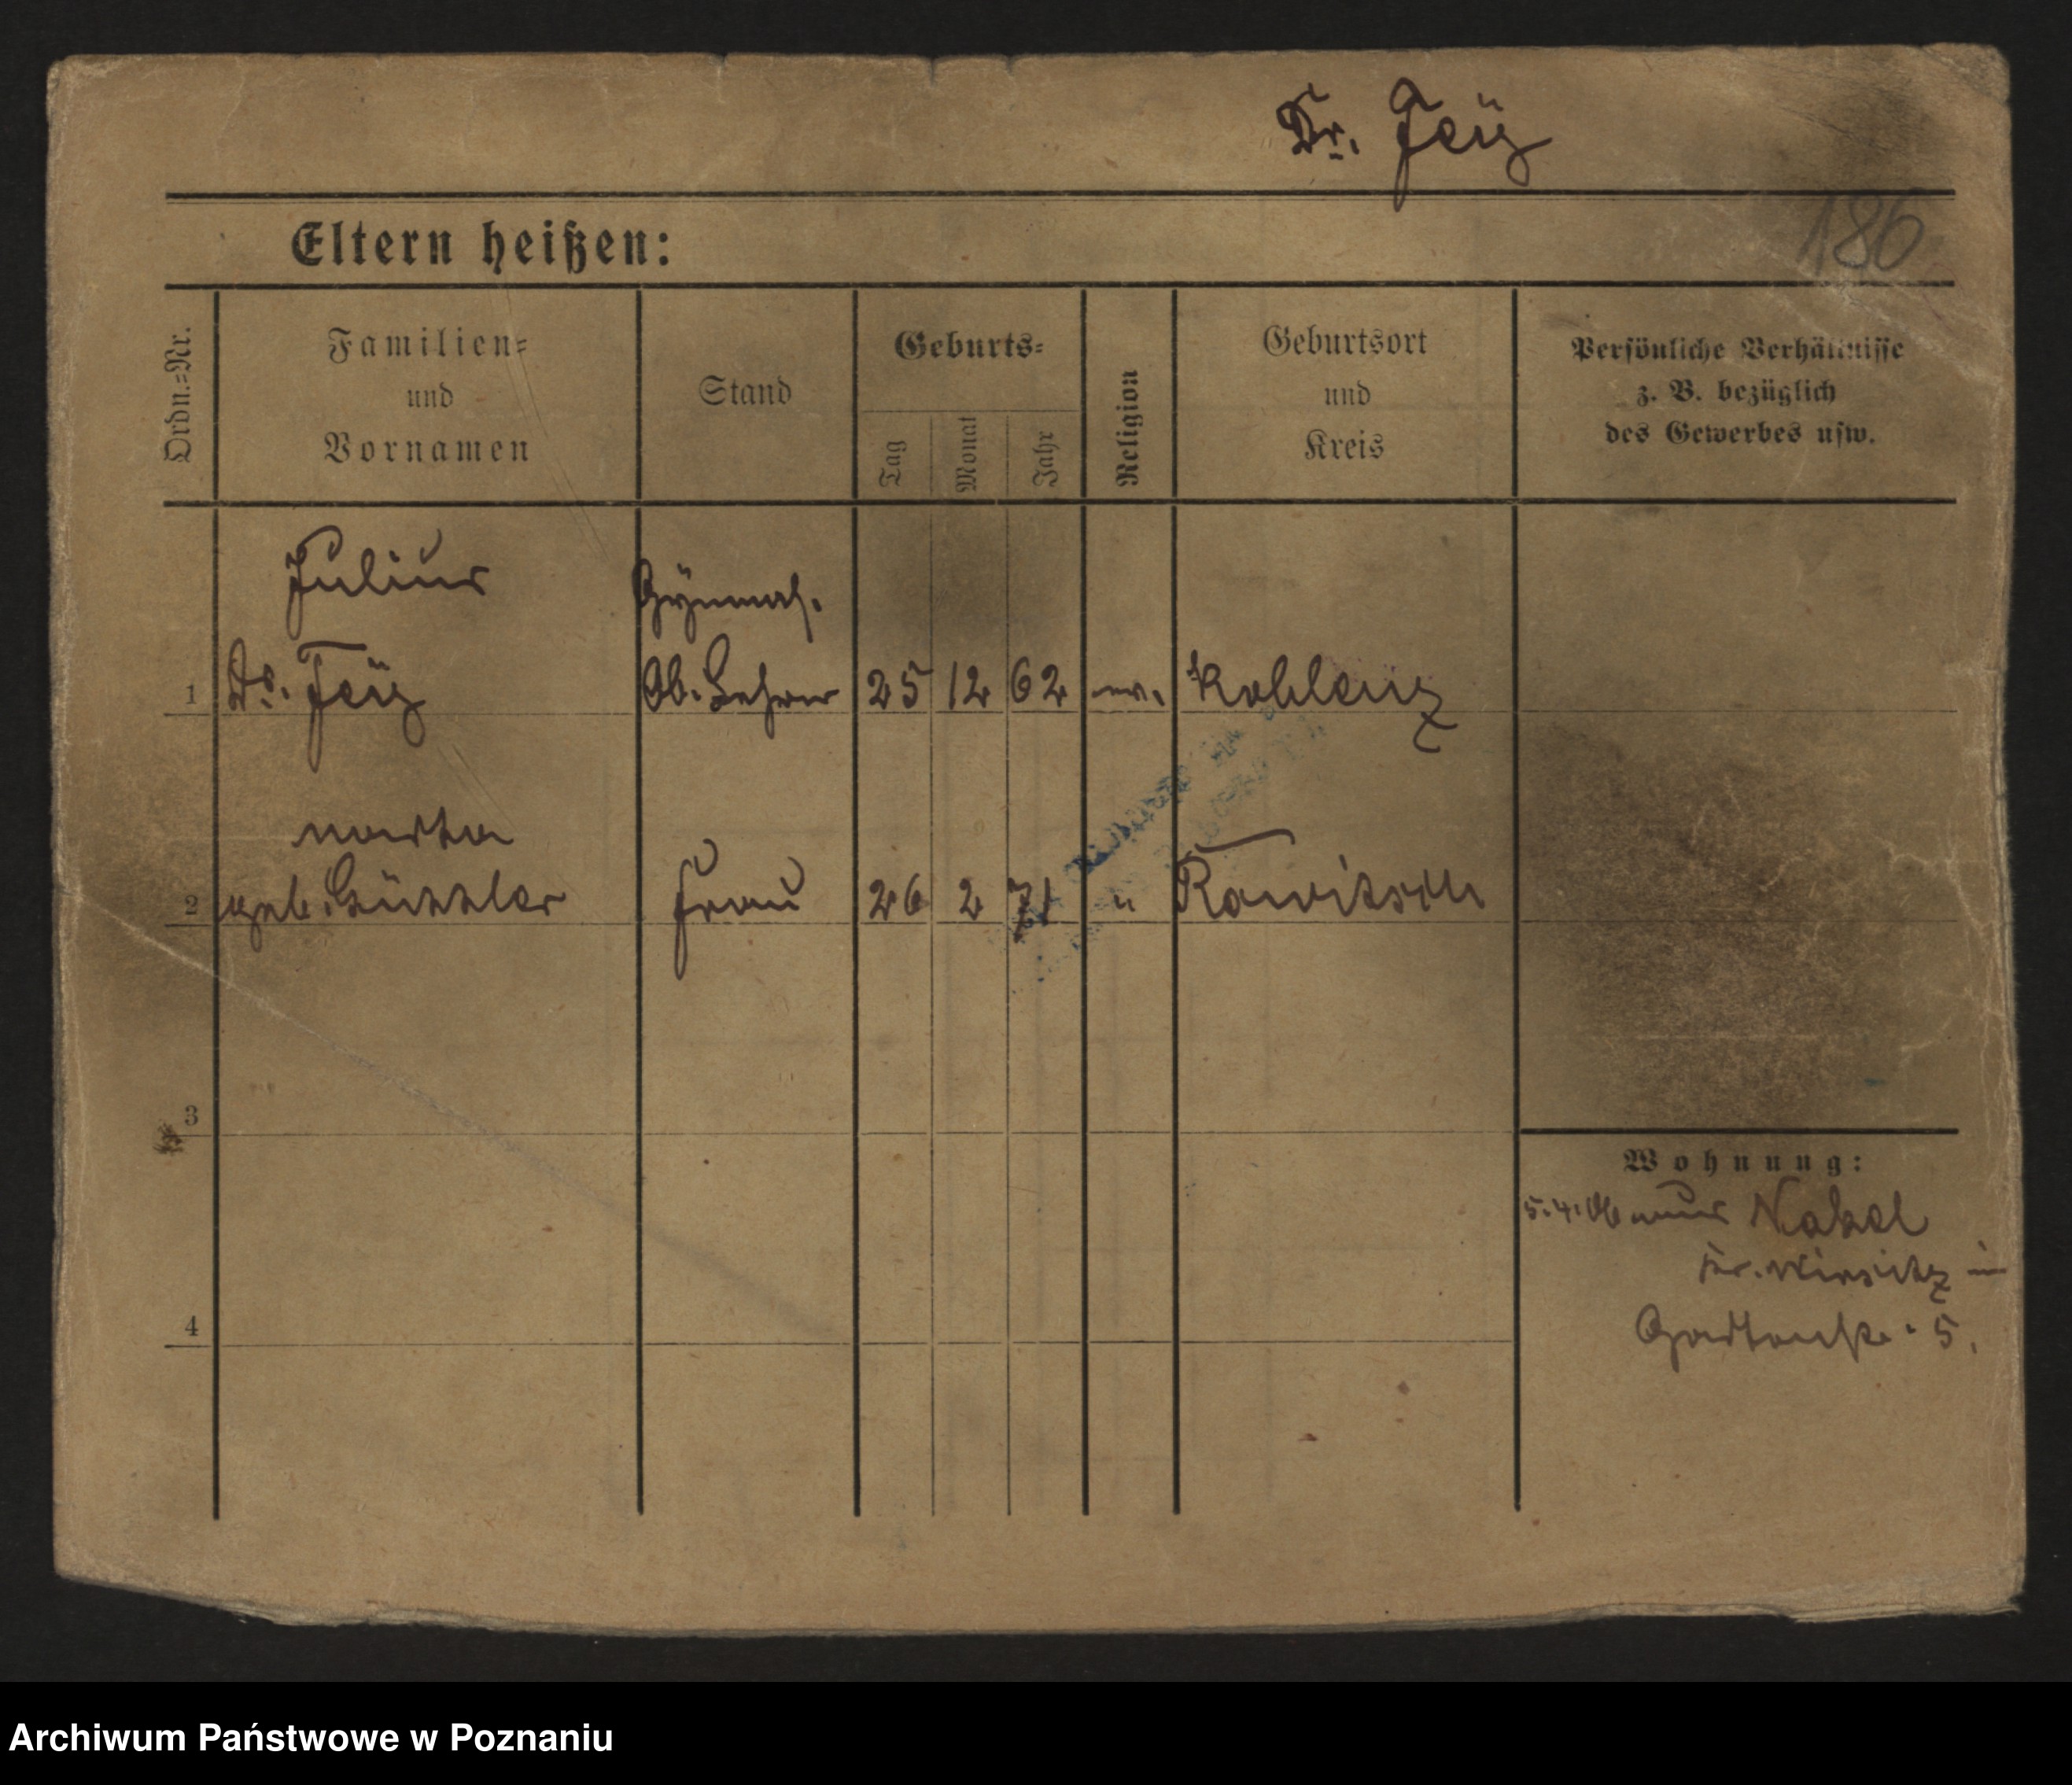 Dr. Feig
186
Eltern heißen:
Ordn.=Nr.
Familien=
und
Vornamen
Stand
Geburts=
Tag
Monat
Jahr
Religion
Geburtsort
und
Kreis
Persönliche Verhältnisse
z. B. bezüglich
des Gewerbes usw.
Julius
Gymnas.
1 Dr. Feig Ob. Lehrer 25 12 62 ev. Koblenz
Martha
2 geb. Frau 26 2 71 " Rawitsch
3
Wohnung:
5. 4. 06 Nakel
Kr. Wirsitz in
4
5.
Archiwum Państwowe w Poznaniu